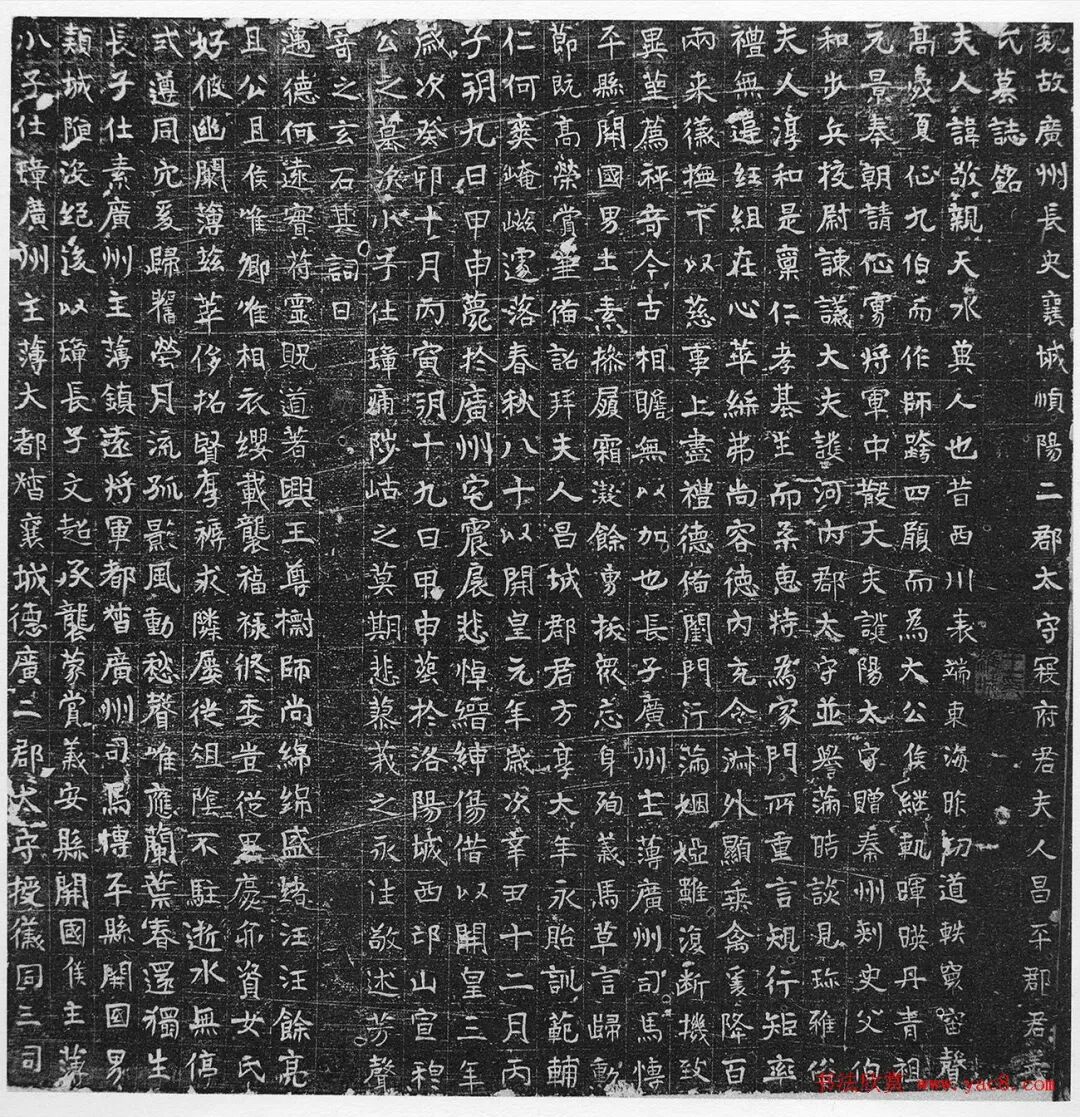 魏故廣州長史襄城順陽二郡太守寇府君夫人昌平郡君姜
氏墓誌銘
夫人諱敬親天水冀人也昔西川表端東海昨切道軼寰宙聲
高虞夏佐九伯而作師跨四顧而為大公侯継軌暉暎丹青祖
元景奉朝請伍寧將軍中散大夫譙陽太守贈秦州刺史父伯
和步兵挍尉諫議大夫譙河內郡太守並譽滿時談見珎雅俗
夫人淳和是稟仁孝基生而柔惠特為家門所重言規行矩率
禮無違紝組在心苹絺弗尚容德內充令淋外顯乗禽爰降百
兩来儀撫下以慈事上盡禮德俻閨門行滿姻婭雖復断機致
異堂薦秤奇今古相瞻無以加也長子廣州主薄廣州司馬博
平縣開國男士素摻履霜凝餘勇拔眾忘身殉義馬草言歸勲
節既高榮賞兼俻詔拜夫人昌城郡君方享大年永貽訓範輔
仁何爽崦嵫遽落春秋八十以開皇元年歲次辛丑十二月丙
子朔九日甲申薨於廣州宅震展悲悼縉紳傷借以開皇三年
歲次癸卯十月丙寅朔十九日甲申葬於洛陽城西邙山宣穆
公之墓次小子仕璋痛陟岵之莫期悲蓼莪之永往敬述芳聲
寄之玄石其詞曰
邁德何遠實苻靈貺道著興王尊擳師尚綿綿盛緒汪汪餘亮
且公且侯唯卿唯相衣纓載襲福禄俢委豈從里慶亦資女氏
好仇幽闌薄兹苹侈招賢厚褥求隣屢徙俎隂不駐逝水無停
式遵同穴爰歸舊塋月流孤影風動愁聲唯應蘭葉春還獨生
長子仕素廣州主薄鎮遠将軍都督廣州司馬博平縣開囯男
頬城陣没絕後以璋長子文超承襲蒙賞義安縣開國侯主薄
小子仕璋廣州主薄大都督襄城德廣二郡太守授儀同三司
书法欣赏 www.yac8.com